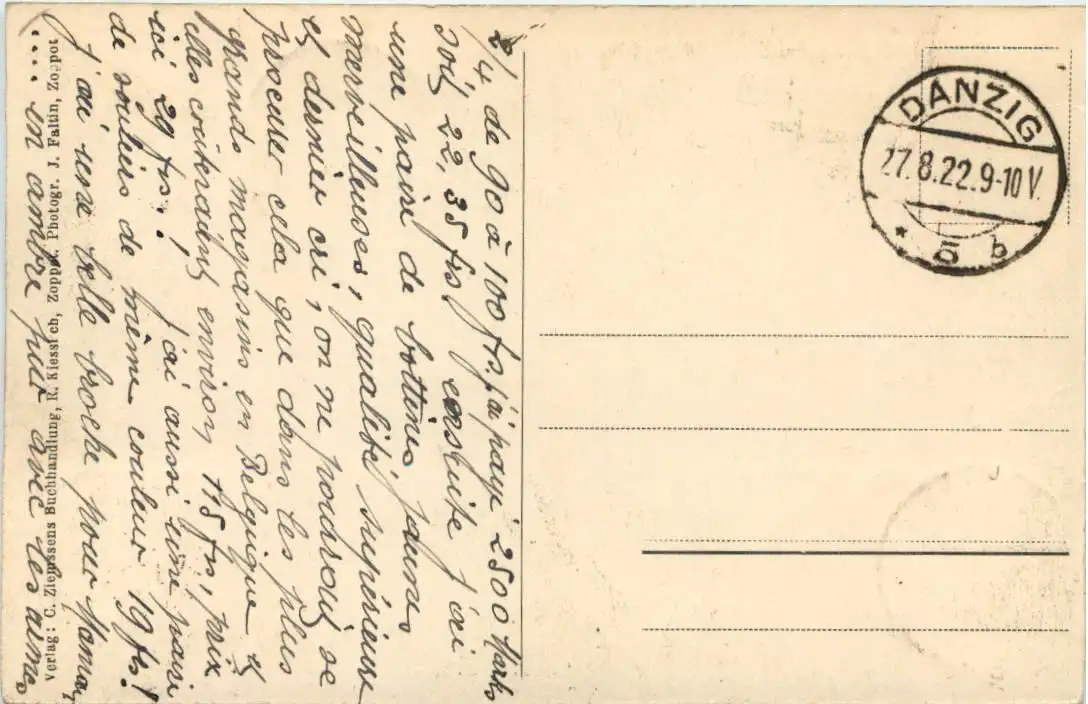 2/4 de 90 à 100 frs. j'ai payé 2500 Marks
soit 22,35 frs ensuite j'ai
une paire de bottines jaunes
merveilleuses, qualité supérieure
et dernier cri, on ne pourrait se
procurer cela que dans les plus
grands magasins en Belgique et
elles coûteraient environ 115 frs, prix
ici 29 frs.! j'ai aussi une paire
de souliers de même couleur 19 frs!
J'ai une belle broche pour Maman,
.... en ambre pur avec les
Verlag: C. Ziemssens Buchhandlung, R. Kiesslich, Zoppot, Photogr. J. Falun, Zoppot
DANZIG
27.8.22.9-10 V.
* 5 b